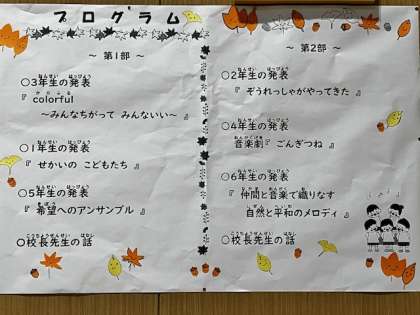 プログラム
～ 第1部 ～
○3年生の発表
『 colorful
～みんなちがって みんないい～ 』
○1年生の発表
『 せかいの こどもたち 』
○5年生の発表
『 希望へのアンサンブル 』
○校長先生の話
～ 第2部 ～
○2年生の発表
『 ぞうれっしゃがやってきた 』
○4年生の発表
音楽劇『 ごんぎつね 』
○6年生の発表
『 仲間と音楽で織りなす
自然と平和のメロディ 』
○校長先生の話